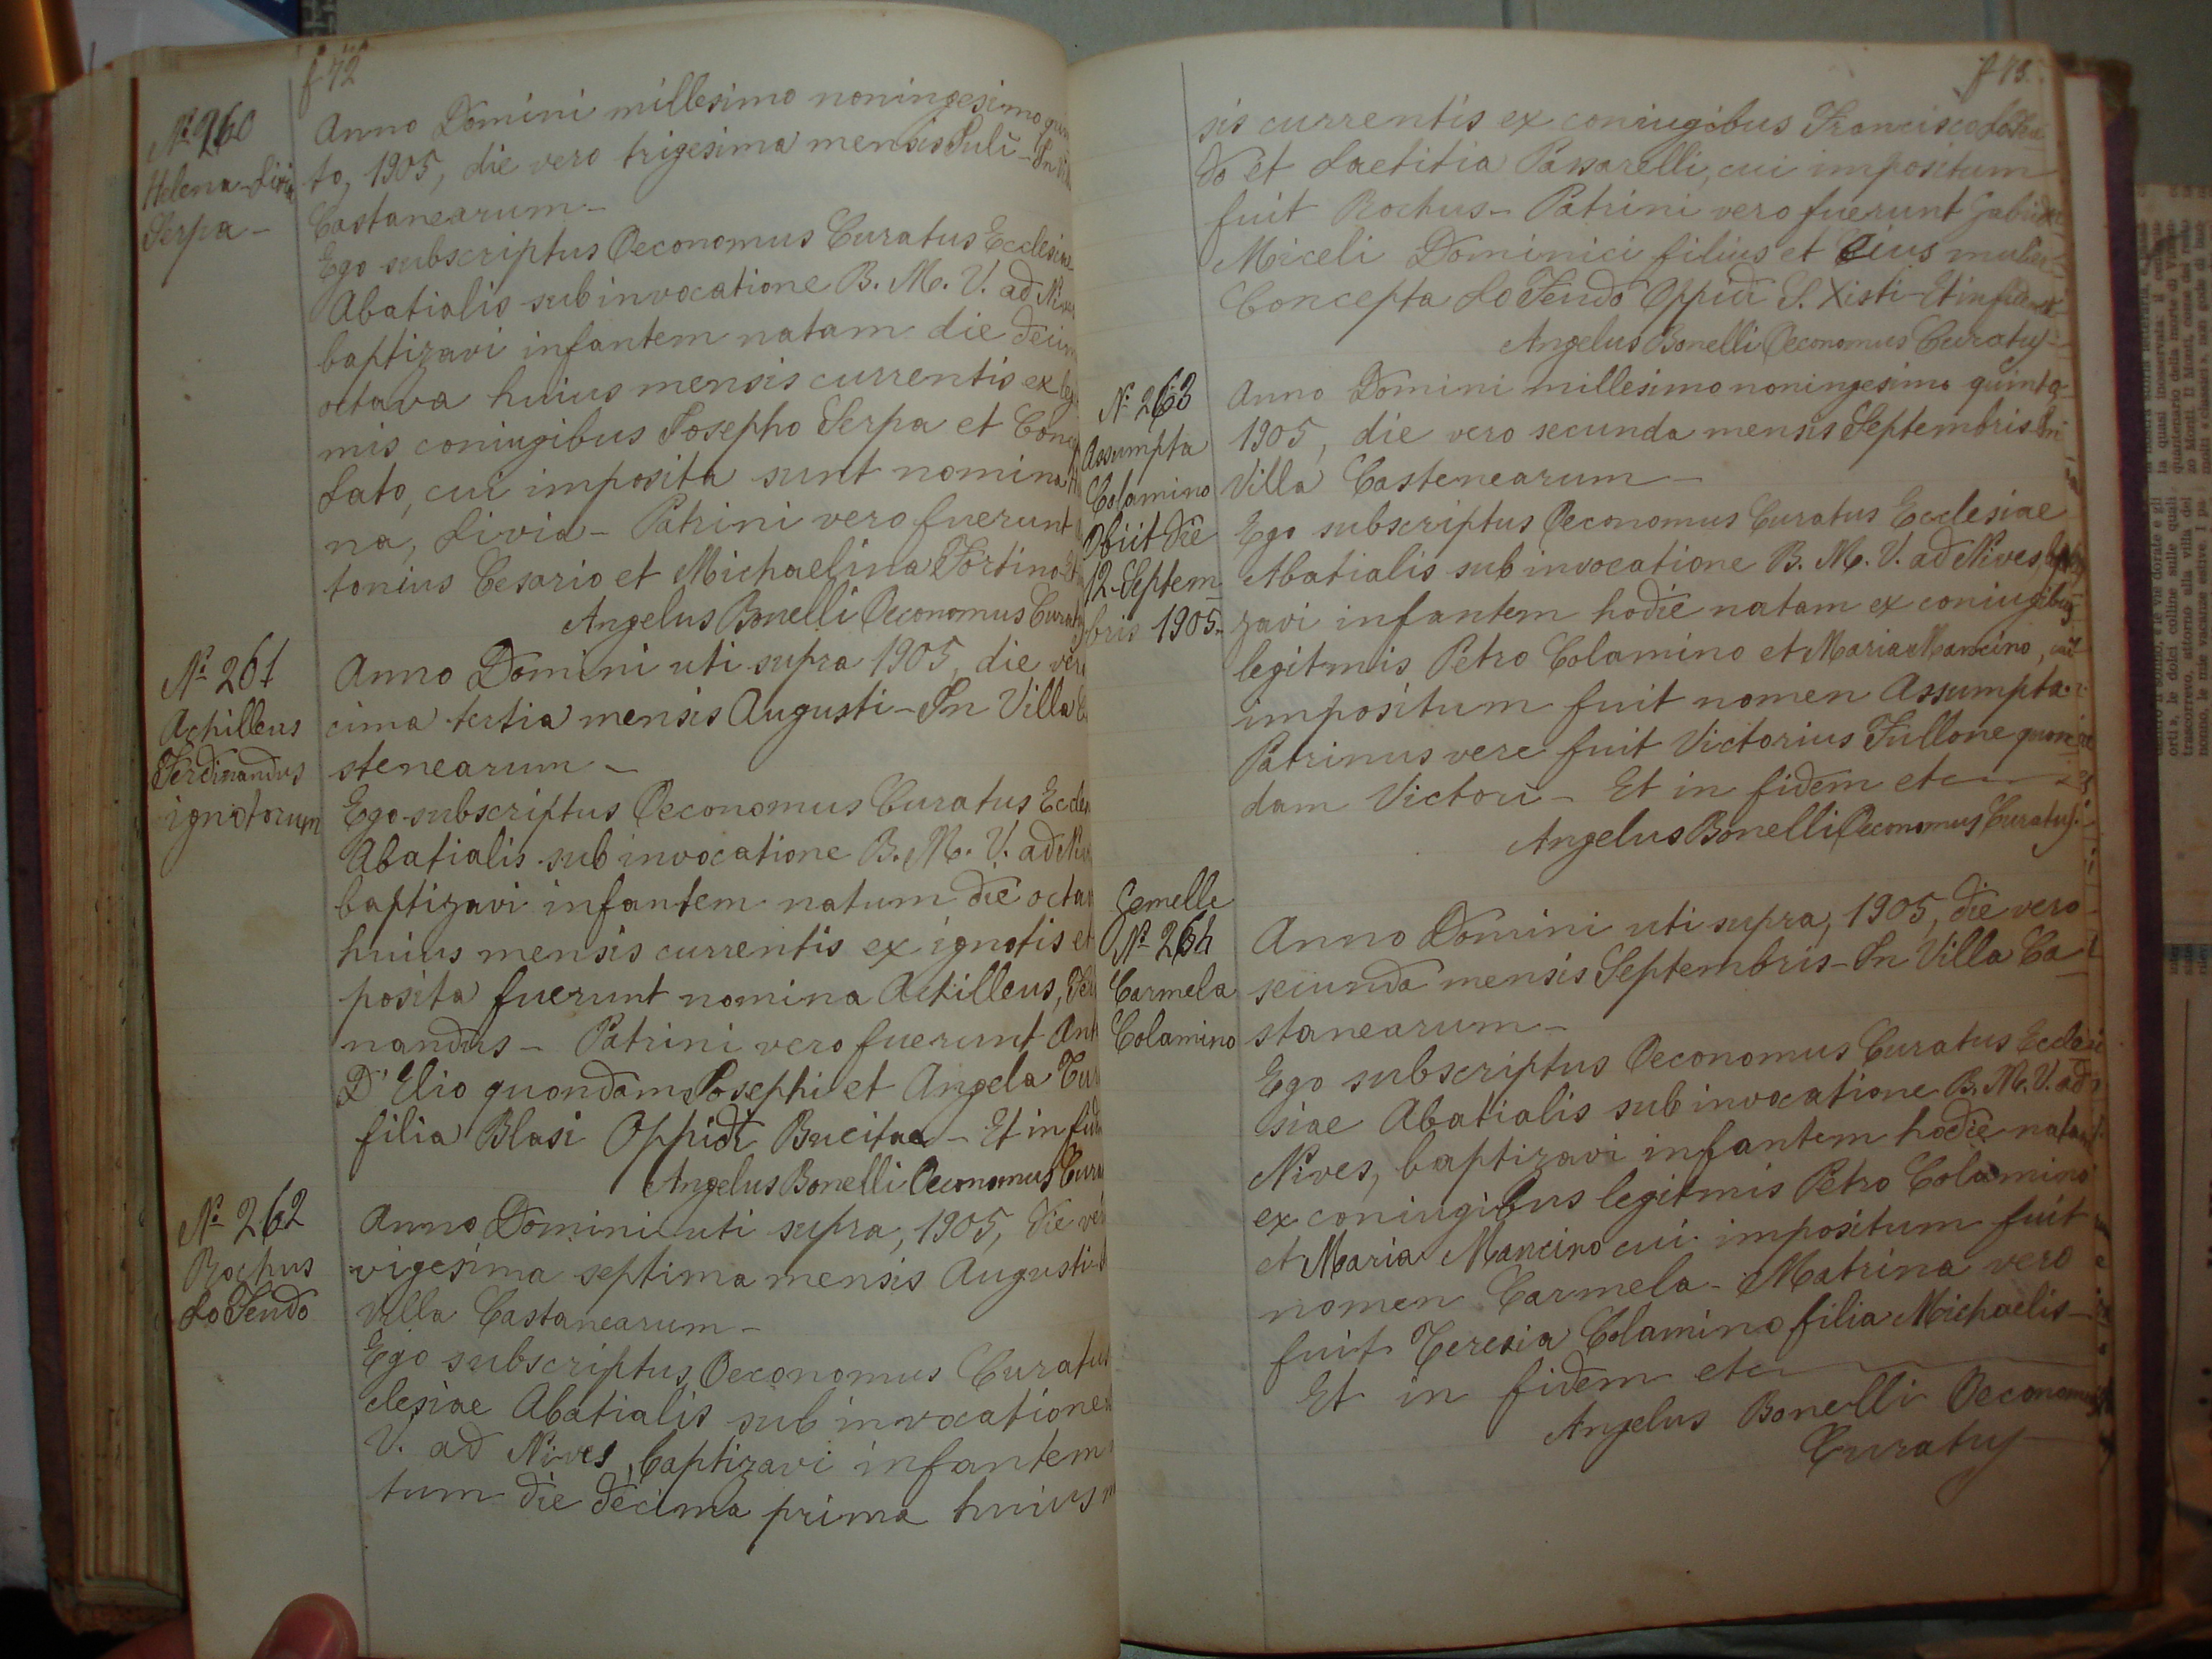 f 72
Nº 260
Helena-Livia
Serpa-
Anno Domini millesimo noningesimo
to, 1905, die vero trigesima mensis Iulî - In
Castanearum-
Ego subscriptus Oeconomus Curatus Ecclesiae
Abatialis sub invocatione B. M. V. ad
baptizavi infantem natam die
octava huius mensis currentis ex
mis coniugibus Iosepho Serpa et
Lato, cui imposita sunt nomina
na, Livia - Patrini vero fuerunt
tonius Cesario et Michaelina Fortino
Angelus Bonelli Oeconomus
Nº 261
Achilleus
Ferdinandus
ignotorum
Anno Domini uti supra 1905, die
cima tertia mensis Augusti - In Villa
stenearum -
Ego subscriptus Oeconomus Curatus
Abatialis sub invocatione B. M. V. ad
baptizavi infantem natum die
huius mensis currentis ex ignotis et
posita fuerunt nomina Achilleus,
nandus - Patrini vero fuerunt
D' Elio quondam Iosephi et Angela
filia Blasi Oppidi Bucitae - Et in
Angelus Bonelli Oeconomus
Nº 262
Rochus
Lo Tendo
Anno Domini uti supra, 1905, die
vigesima septima mensis Augusti
Villa Castanearum -
Ego subscriptus Oeconomus
clesiae Abatialis sub invocatione
V. ad Nives, baptizavi infantem
tum die decima prima huius
f 73.
sis currentis ex coniugibus Francisco
do et Laetitia Passarelli, cui impositum
fuit Rochus - Patrini vero fuerunt
Miceli Dominici filius et Eius
Concepta Lo Tendo Oppidi S. Xisti - Et in
Angelus Bonelli Oeconomus Curatus
Nº 263
Assumpta
Colamino
Obiit die
12 Septem-
bris 1905-
Anno Domini millesimo noningesimo quinto
1905, die vero secunda mensis Septembris In
Villa Castenearum -
Ego subscriptus Oeconomus Curatus Ecclesiae
Abatialis sub invocatione B. M. V. ad Nives,
zavi infantem hodie natam ex coniugibus
legitmis Petro Colamino et Maria Mancino, cui
impositum fuit nomen Assumpta.
Patrinus vere fuit Victorius Tullone quon
dam Victori - Et in fidem etc
Angelus Bonelli Oeconomus Curatus.
Gemelle
Nº 264
Carmela
Colamino
Anno Domini uti supra, 1905, die vero
secunda mensis Septembris - In Villa Ca
stanearum -
Ego subscriptus Oeconomus Curatus Eccle
siae Abatialis sub invocatione B. M. V. ad
Nives, baptizavi infantem hodie natam
ex coniugibus legitmis Petro Colamino
et Maria Mancino cui impositum fuit
nomen Carmela - Matrina vero
fuit Teresia Colamino filia Michaelis -
Et in fidem etc
Angelus Bonelli Oeconomus
Curatus